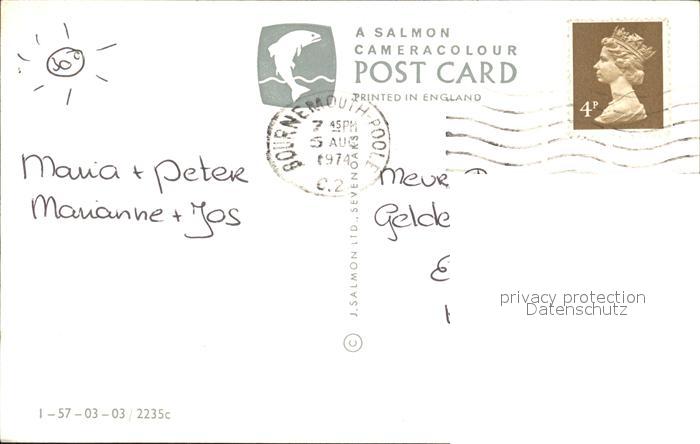 30°
A SALMON
CAMERACOLOUR
POST CARD
PRINTED IN ENGLAND
4P
BOURNEMOUTH-POOLE
7 45PM
5 AUG
1974
C.2
Maria + Peter
Marianne + Jos
J. SALMON LTD., SEVENOAKS
©
Meur
Gelde
privacy protection
Datenschutz
1-57-03-03/2235c